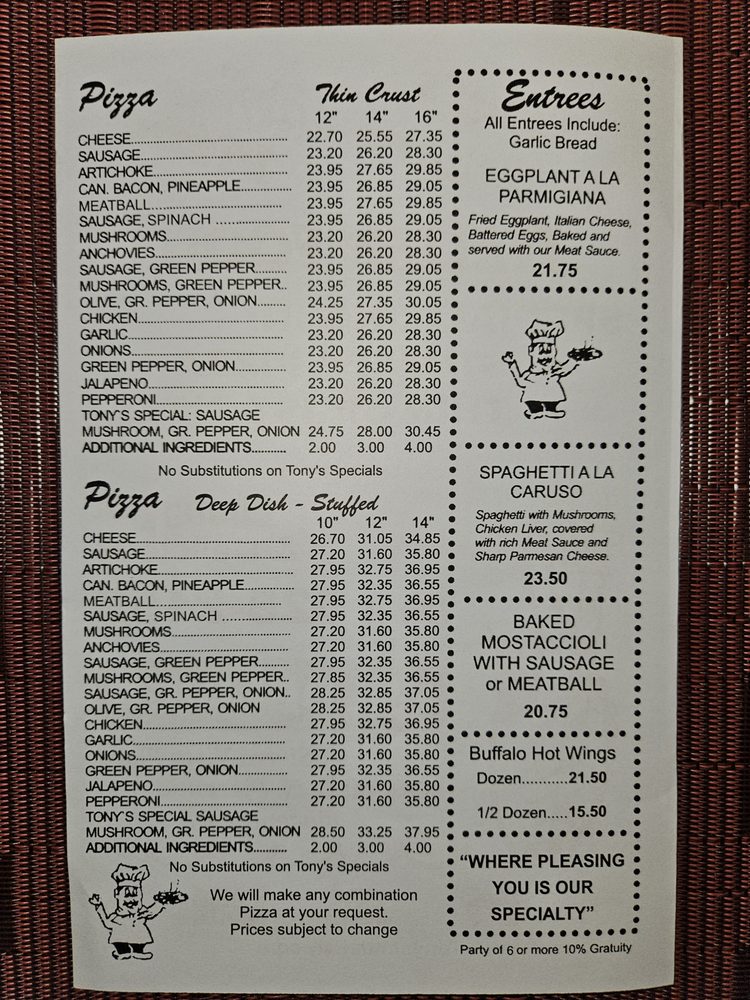 Pizza Thin Crust
12" 14" 16"
CHEESE 22.70 25.55 27.35
SAUSAGE 23.20 26.20 28.30
ARTICHOKE 23.95 27.65 29.85
CAN. BACON, PINEAPPLE 23.95 26.85 29.05
MEATBALL 23.95 27.65 29.85
SAUSAGE, SPINACH 23.95 26.85 29.05
MUSHROOMS 23.20 26.20 28.30
ANCHOVIES 23.20 26.20 28.30
SAUSAGE, GREEN PEPPER 23.95 26.85 29.05
MUSHROOMS, GREEN PEPPER 23.95 26.85 29.05
OLIVE, GR. PEPPER, ONION 24.25 27.35 30.05
CHICKEN 23.95 27.65 29.85
GARLIC 23.20 26.20 28.30
ONIONS 23.20 26.20 28.30
GREEN PEPPER, ONION 23.95 26.85 29.05
JALAPENO 23.20 26.20 28.30
PEPPERONI 23.20 26.20 28.30
TONY'S SPECIAL: SAUSAGE
MUSHROOM, GR. PEPPER, ONION 24.75 28.00 30.45
ADDITIONAL INGREDIENTS 2.00 3.00 4.00
No Substitutions on Tony's Specials
Pizza Deep Dish - Stuffed
10" 12" 14"
CHEESE 26.70 31.05 34.85
SAUSAGE 27.20 31.60 35.80
ARTICHOKE 27.95 32.75 36.95
CAN. BACON, PINEAPPLE 27.95 32.35 36.55
MEATBALL 27.95 32.75 36.95
SAUSAGE, SPINACH 27.95 32.35 36.55
MUSHROOMS 27.20 31.60 35.80
ANCHOVIES 27.20 31.60 35.80
SAUSAGE, GREEN PEPPER 27.95 32.35 36.55
MUSHROOMS, GREEN PEPPER 27.85 32.35 36.55
SAUSAGE, GR. PEPPER, ONION 28.25 32.85 37.05
OLIVE, GR. PEPPER, ONION 28.25 32.85 37.05
CHICKEN 27.95 32.75 36.95
GARLIC 27.20 31.60 35.80
ONIONS 27.20 31.60 35.80
GREEN PEPPER, ONION 27.95 32.35 36.55
JALAPENO 27.20 31.60 35.80
PEPPERONI 27.20 31.60 35.80
TONY'S SPECIAL SAUSAGE
MUSHROOM, GR. PEPPER, ONION 28.50 33.25 37.95
ADDITIONAL INGREDIENTS 2.00 3.00 4.00
No Substitutions on Tony's Specials
We will make any combination
Pizza at your request.
Prices subject to change
Entrees
All Entrees Include:
Garlic Bread
EGGPLANT A LA
PARMIGIANA
Fried Eggplant, Italian Cheese,
Battered Eggs, Baked and
served with our Meat Sauce.
21.75
SPAGHETTI A LA
CARUSO
Spaghetti with Mushrooms,
Chicken Liver, covered
with rich Meat Sauce and
Sharp Parmesan Cheese.
23.50
BAKED
MOSTACCIOLI
WITH SAUSAGE
or MEATBALL
20.75
Buffalo Hot Wings
Dozen 21.50
1/2 Dozen 15.50
"WHERE PLEASING
YOU IS OUR
SPECIALTY"
Party of 6 or more 10% Gratuity